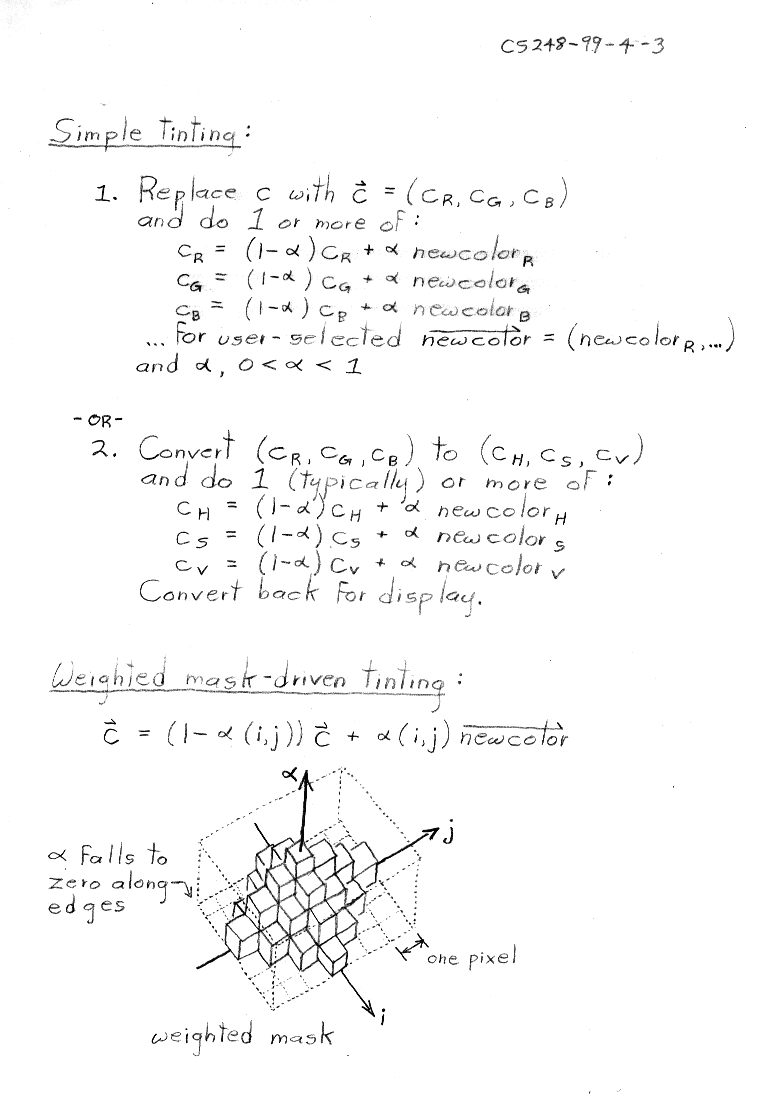 CS248-99-4-3
Simple Tinting:
1. Replace c with c⃗ = (C_R, C_G, C_B)
and do 1 or more of:
C_R = (1-α)C_R + α newcolor_R
C_G = (1-α)C_G + α newcolor_G
C_B = (1-α)C_B + α newcolor_B
... for user-selected newcolor⃗ = (newcolor_R,...)
and α, 0<α<1
-OR-
2. Convert (C_R, C_G, C_B) to (C_H, C_S, C_V)
and do 1 (typically) or more of:
C_H = (1-α)C_H + α newcolor_H
C_S = (1-α)C_S + α newcolor_S
C_V = (1-α)C_V + α newcolor_V
Convert back for display.
Weighted mask-driven tinting:
c⃗ = (1-α(i,j))c⃗ + α(i,j) newcolor⃗
α
j
α falls to
zero along
edges
one pixel
i
weighted mask